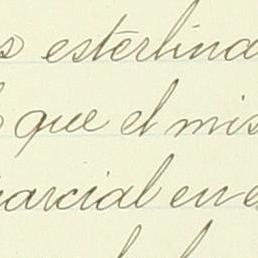 s esterlina
que el mis
arcial en e